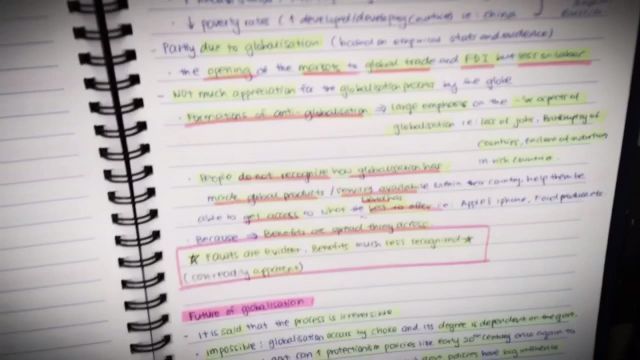 ↓ poverty rates (↑ developed/developing countries i.e: China
- Partly due to globalisation (based on empirical stats and evidence)
• the opening of the markets to global trade and FDI but less on labour
- NOT much appreciation for the globalisation process by the globe
• Formations of anti-globalisation ⇒ large emphasis on the -'ve aspects of
globalisation i.e: loss of jobs, Bankruptcy of
countries, of industries
in rich countries.
• People do not recognize how globalisation has
made global products / services available within their country, help them be
able to get access to what the has
best to offer i.e: Apple's iphone, Food products
• Because ⇒ Benefits are spread thinly across
★ Faults are evident, Benefits much less recognized ★
(con readily apparent)
Future of globalisation
- It is said that the process is irreversible
• impossible: globalisation occurs by choice and its degree is dependent on the govt.
govt can ↑ protectionism policies like early 20th century once again to